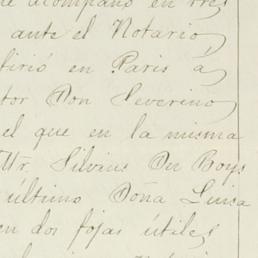 acompaño en tres
ante el Notario
firió en Paris á
tor Don Severino
el que en la misma
Mr. Silvius Du Boys
último Doña Luisa
en dos fojas útiles